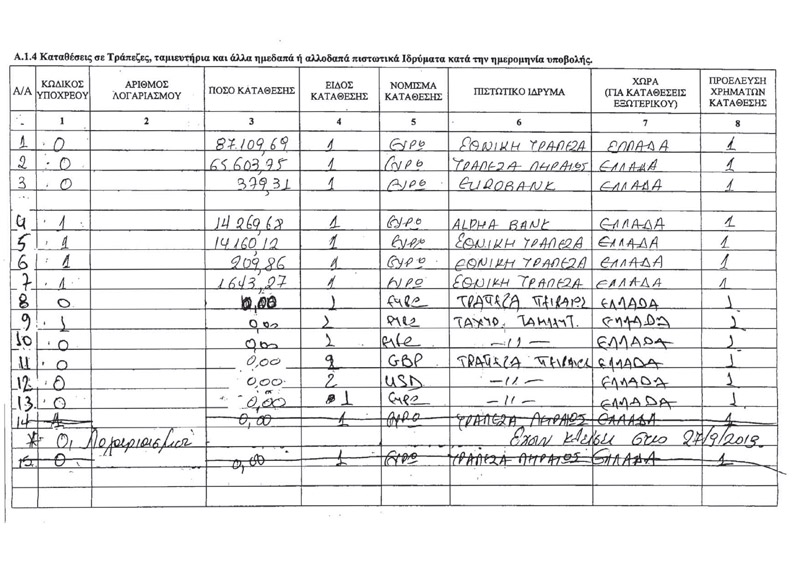 Α.1.4 Καταθέσεις σε Τράπεζες, ταμιευτήρια και άλλα ημεδαπά ή αλλοδαπά πιστωτικά Ιδρύματα κατά την ημερομηνία υποβολής.
Α/Α ΚΩΔΙΚΟΣ ΥΠΟΧΡΕΟΥ ΑΡΙΘΜΟΣ ΛΟΓΑΡΙΑΣΜΟΥ ΠΟΣΟ ΚΑΤΑΘΕΣΗΣ ΕΙΔΟΣ ΚΑΤΑΘΕΣΗΣ ΝΟΜΙΣΜΑ ΚΑΤΑΘΕΣΗΣ ΠΙΣΤΩΤΙΚΟ ΙΔΡΥΜΑ ΧΩΡΑ (ΓΙΑ ΚΑΤΑΘΕΣΕΙΣ ΕΞΩΤΕΡΙΚΟΥ) ΠΡΟΕΛΕΥΣΗ ΧΡΗΜΑΤΩΝ ΚΑΤΑΘΕΣΗΣ
1 2 3 4 5 6 7 8
1 0 87109,69 1 ΕΥΡΩ ΕΘΝΙΚΗ ΤΡΑΠΕΖΑ ΕΛΛΑΔΑ 1
2 0 65.603,95 1 ΕΥΡΩ ΤΡΑΠΕΖΑ ΠΗΡΑΙΩΣ ΕΛΛΑΔΑ 1
3 0 379,31 1 ΕΥΡΩ EUROBANK ΕΛΛΑΔΑ 1
4 1 14269,68 1 ΕΥΡΩ ALPHA BANK ΕΛΛΑΔΑ 1
5 1 14160,12 1 ΕΥΡΩ ΕΘΝΙΚΗ ΤΡΑΠΕΖΑ ΕΛΛΑΔΑ 1
6 1 209,86 1 ΕΥΡΩ ΕΘΝΙΚΗ ΤΡΑΠΕΖΑ ΕΛΛΑΔΑ 1
7 1 1643,27 1 ΕΥΡΩ ΕΘΝΙΚΗ ΤΡΑΠΕΖΑ ΕΛΛΑΔΑ 1
8 0 0,00 1 ΕΥΡΩ ΤΡΑΠΕΖΑ ΠΕΙΡΑΙΩΣ ΕΛΛΑΔΑ 1
9 1 0,00 1 ΕΥΡΩ ΤΑΧΥΔ. ΤΑΜΙΕΥΤ. ΕΛΛΑΔΑ 1
10 0 0,00 1 ΕΥΡΩ -//- ΕΛΛΑΔΑ 1
11 0 0,00 2 GBP ΤΡΑΠΕΖΑ ΠΕΙΡΑΙΩΣ ΕΛΛΑΔΑ 1
12 0 0,00 2 USD -//- ΕΛΛΑΔΑ 1
13 0 0,00 1 ΕΥΡΩ -//- ΕΛΛΑΔΑ 1
14 1 0,00 1 ΕΥΡΩ ΤΡΑΠΕΖΑ ΠΗΡΑΙΩΣ ΕΛΛΑΔΑ 1
* Οι λογαριασμοί έχουν κλείσει στις 27/9/2019.
15 0 0,00 1 ΕΥΡΩ ΤΡΑΠΕΖΑ ΠΗΡΑΙΩΣ ΕΛΛΑΔΑ 1